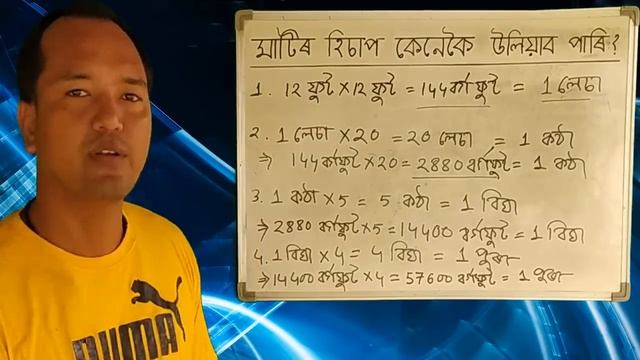 মাটিৰ হিচাপ কেনেকৈ উলিয়াব পাৰি?
1. 12 ফুট × 12 ফুট = 144 বৰ্গ ফুট = 1 লেচা
2. 1 লেচা × 20 = 20 লেচা = 1 কঠা
⇒ 144 বৰ্গফুট × 20 = 2880 বৰ্গফুট = 1 কঠা
3. 1 কঠা × 5 = 5 কঠা = 1 বিঘা
⇒ 2880 বৰ্গফুট × 5 = 14400 বৰ্গফুট = 1 বিঘা
4. 1 বিঘা × 4 = 4 বিঘা = 1 পুৰা
⇒ 14400 বৰ্গফুট × 4 = 57600 বৰ্গফুট = 1 পুৰা
PUMA